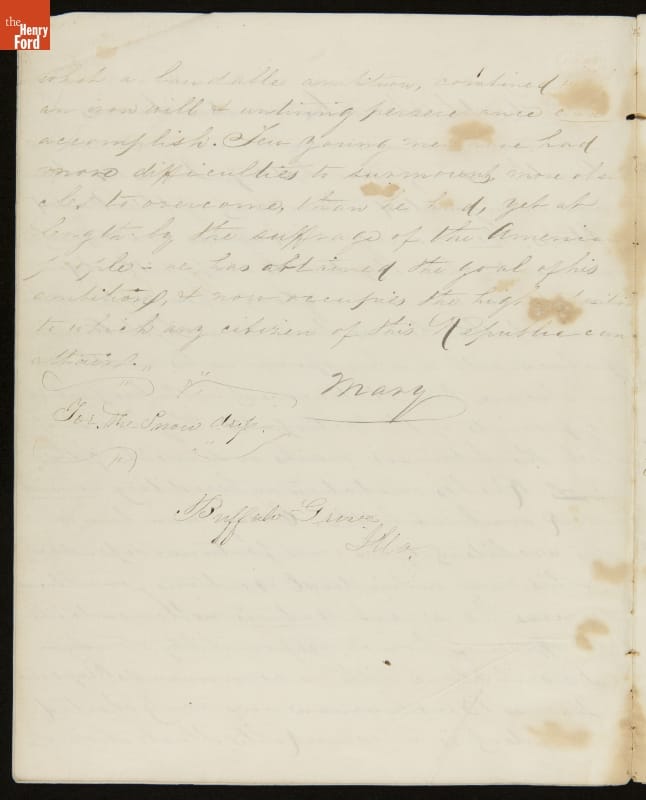 the
Henry
Ford
what a laudable ambition, combined
an iron will & untiring perseverance can
accomplish. Few young men have had
more difficulties to surmount, more obsta
cles to overcome, than he had, yet at
length by the suffrage of the America
people he has obtained the goal of his
ambition, & now occupies the highest
to which any citizen of this Republic can
attain."
Mary
For The Snow drop.
Buffalo Grove
Ills.